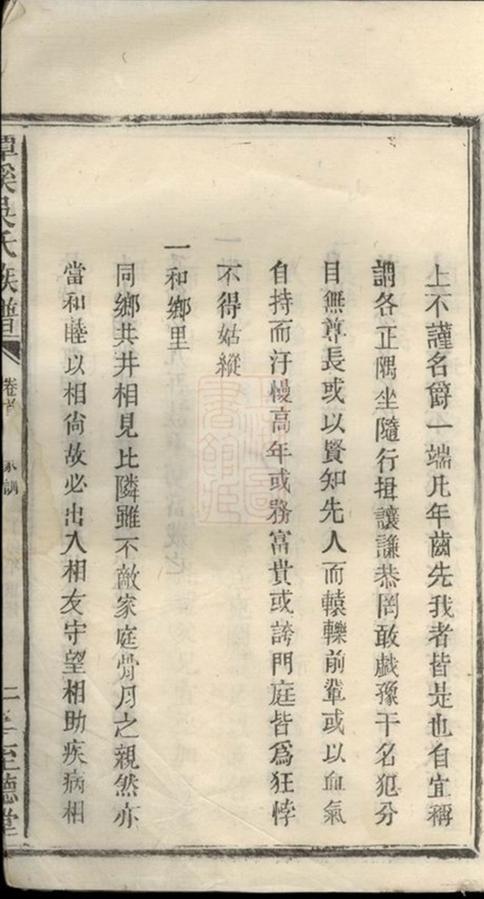 上不謹名爵一端凡年齒先我者皆是也自宜稱
謂各正隅坐隨行揖讓謙恭罔敢戲豫干名犯分
目無尊長或以賢知先人而轅轢前輩或以血氣
自持而汙慢高年或務富貴或誇門庭皆爲狂悖
不得姑縱
一和鄉里
同鄉共井相見比隣雖不敵家庭骨月之親然亦
當和睦以相尙故必出入相友守望相助疾病相
潭溪吳氏族譜
卷首
家訓
至德堂